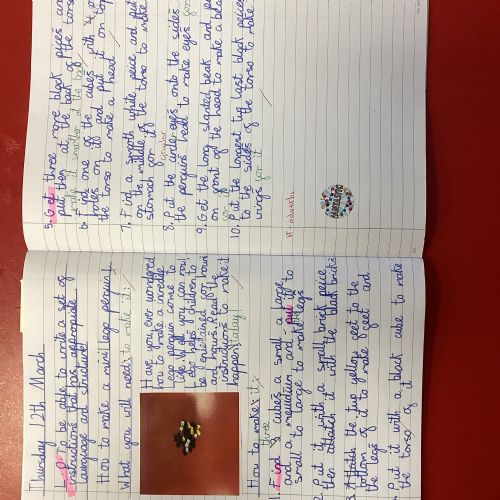 Thursday 12th March
LO To be able to write a set of
instructions that has appropriate
language and structure!
How to make a mini lego penguin!
What you will need to make it:
Have you ever wondered
how to make a
lego penguin come to
life? Well you can now!
Lego helps children to
be entertained for hours
and hours. Read the
instructions to make it
happen today!
How to make it:
three
1. Find 3 cubes a small a large
and a and put it to
small to large to make the legs
2. Put it with a small brick peice
then attatch it with the black bricks
3. Attatch the two yellow feet to the
bottom of it to make feet and
the legs
Put it with a black cube to make
the torso of it
5. Get three more black pieces and
put them at the back of the torso
make it smaller at the
6. Find one of the cubes with 4
holes on it and put it on top
the torso to make a head
7. Find a smooth white peice and put
on the middle of the torso to make
stomach for it
8. Put the eyes onto the sides
the penguins head to make eyes for
9. Get the long slanted beak and put
on front of the head to make a beak
for it
10. Put the longest two last black peices
to the sides of the torso to make
wings for it
VF adverbs